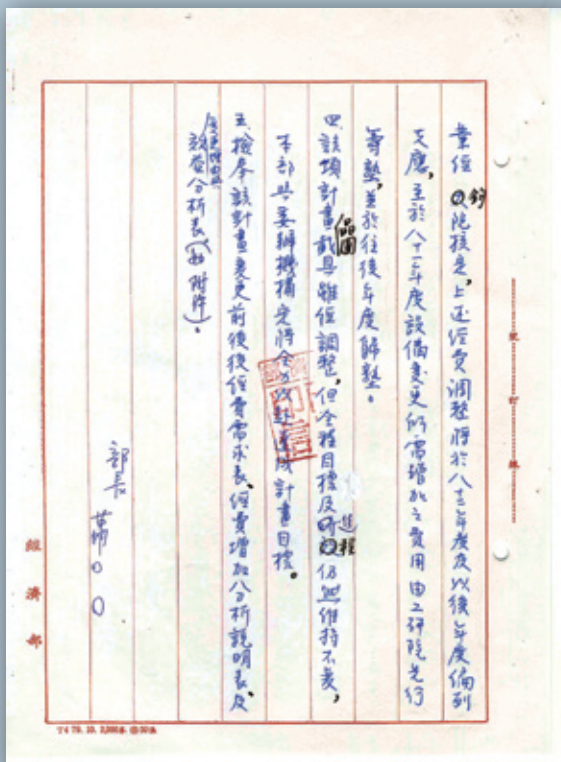 業經鈞院核定,上述經費調整將於八十三年度及以後年度編列
支應,至於八十二年度設備變更所需增加之費用由工研院先行
籌墊,並於往後年度歸墊。
四、該項計畫藍圖雖經調整,但全程目標及進程仍然維持不變,
本部與委辦機構定將全力以赴達成計畫目標。
五、檢奉該計畫變更前後後經費需求表、經費增加分析說明表、及
效益分析表(如附件)。
部長 蕭○○
經濟部
裝 訂 線
印信